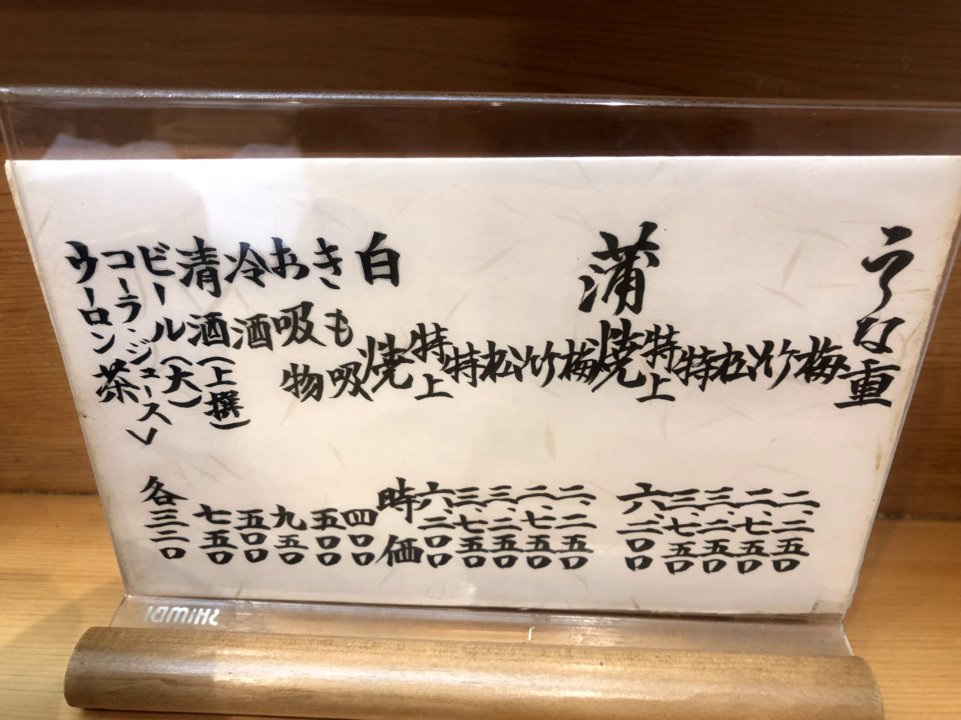 うな重
梅 二、二五〇
竹 二、七五〇
松 三、二五〇
特 三、七五〇
特上 六、二〇〇
蒲焼
梅 二、二五〇
竹 二、七五〇
松 三、二五〇
特 三、七五〇
特上 六、二〇〇
白焼 時価
きも吸 四〇〇
お吸物 五〇〇
冷酒 九五〇
清酒(上撰) 五〇〇
ビール(大) 七五〇
コーラ・ジュース
ウーロン茶 各三三〇
SHiMBI